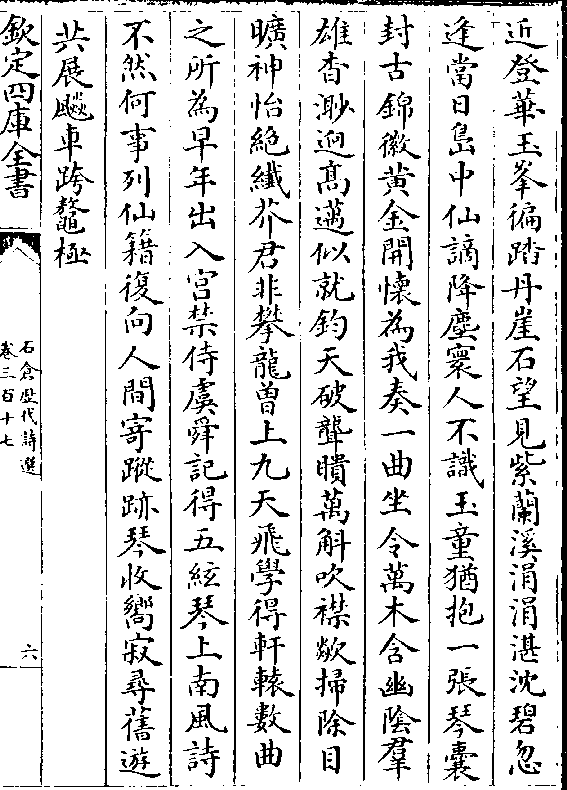 近登華玉峯徧踏丹崖石望見紫蘭溪涓涓湛沈碧忽
逢當日島中仙謫降塵寰人不識玉童猶抱一張琴囊
封古錦徽黄金開懷為我奏一曲坐令萬木含幽陰羣
雄杳渺迥髙邁似就鈞天破聾聵萬斛吹襟歘掃除目
曠神怡絶纖芥君非攀龍曽上九天飛學得軒轅數曲
之所為早年出入宫禁侍虞舜記得五絃琴上南風詩
不然何事列仙籍復向人間寄蹤跡琴收嚮寂尋舊遊
共展飈車跨鼇極
欽定四庫全書
石倉歷代詩選
卷三百十七
六